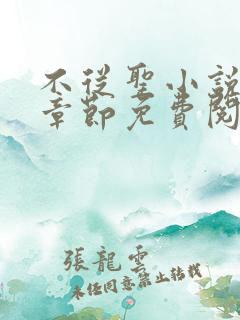 不從聖小說
章節免費閱
張龍雲
未任同意禁止轉載